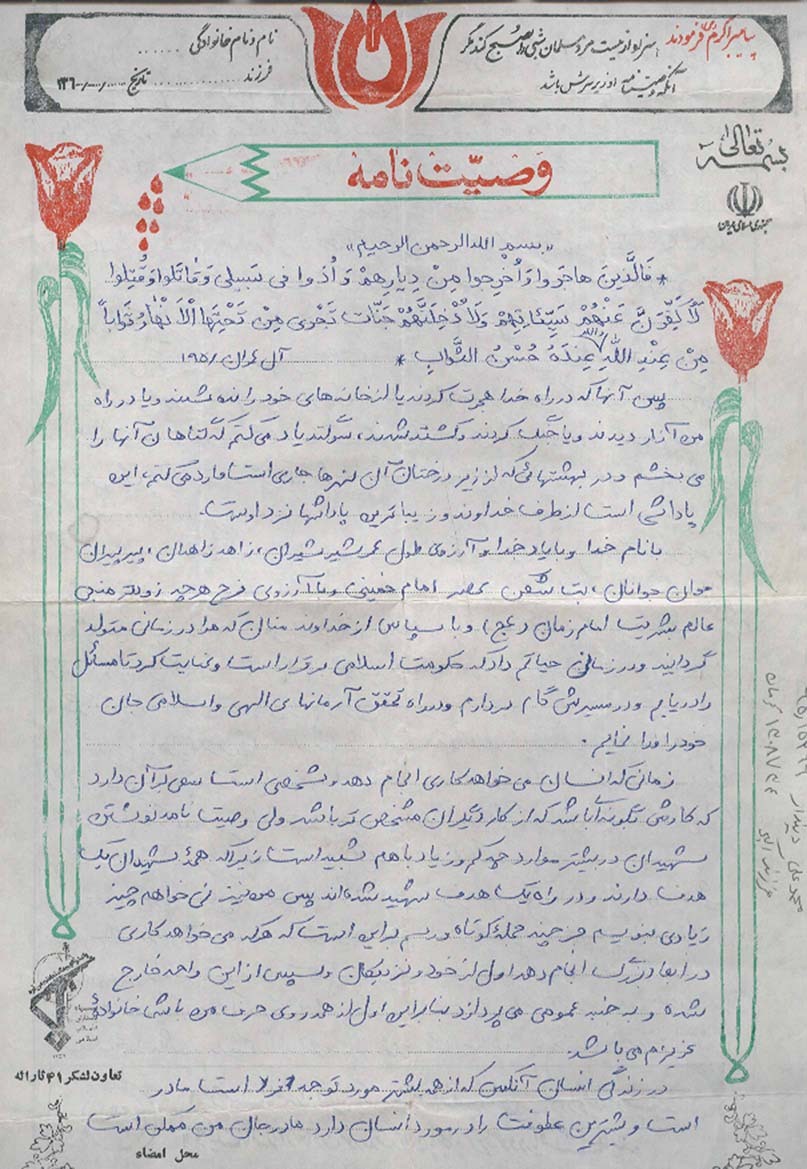 پیامبر اکرم (ص) فرمودند
سزاوار نیست مرد مسلمان شبی را صبح کند مگر
آنکه وصیتنامه او زیر سرش باشد
نام و نام خانوادگی ......
فرزند ........ تاریخ ..../..../۱۳۶۰
بسمه تعالی
جمهوری اسلامی ایران
وصیّت نامه
«بسم الله الرحمن الرحیم»
* فَالَّذینَ هاجَروا وَاُخْرِجوا مِنْ دِیارِهِمْ وَ اُذُوا فی سَبیلی وَ قاتَلوا وَ قُتِلوا
لَاُکَفِّرَنَّ عَنْهُمْ سَیِّئاتِهِمْ وَلَاُدْخِلَنَّهُمْ جَنّاتٍ تَجْری مِنْ تَحْتِهَا الْاَنْهارُ ثَواباً
مِنْ عِنْدِ اللهِ وَالله عِنْدَهُ حُسْنُ الثَّوابِ * آل عمران / ۱۹۵
پس آنها که در راه خدا هجرت کردند یا از خانه‌های خود رانده شدند و یا در راه
من آزار دیدند و یا جنگ کردند و کشته شدند، سوگند یاد می‌کنم که گناهان آنها را
می بخشم و در بهشتهائی که از زیر درختان آن نهرها جاری است وارد می‌کنم، این
پاداشی است از طرف خداوند و زیباترین پاداشها نزد اوست.
بانام خدا و با یاد خدا و آرزوی طول عمر شیر شیران، زاهد زاهدان، پیر پیران
جوان جوانان، بت شکن عصر امام خمینی و با آرزوی فرج هر چه زودتر منجی
عالم بشریت امام زمان (عج) و با سپاس از خداوند منان که مرا در زمانی متولد
گردانید و در زمانی حیاتم داد که حکومت اسلامی برقرار است و عنایت کرد تا مسائل
را دریابم و در مسیرش گام بردارم و در راه تحقق آرمانهای الهی و اسلامی جان
خود را فدا نمایم.
زمانی که انسان می خواهد کاری انجام دهد و شخصی است سعی بر آن دارد
که کارش بگونه‌ای باشد که از کار دیگران مشخص تر باشد ولی وصیت نامه نوشتن
شهیدان در بیشتر موارد چه کم و زیاد با هم شبیه است زیرا که همهٔ شهیدان یک
هدف دارند و در راه یک هدف شهید شده‌اند پس من نیز نمی خواهم چیز
زیادی بنویسم جز چند جملهٔ کوتاه و رسم بر این است که هر که می خواهد کاری
در ابعاد بزرگ انجام دهد اول از خود و نزدیکان و سپس از این واحد خارج
شده و به جنبه عمومی می پردازد بنابراین اول از همه روی حرف من با شما خانوادهٔ
عزیزم می باشد.
در زندگی انسان آنکس که از همه بیشتر مورد توجه افراد است مادر
است و بیشترین عطوفت را در مورد انسان دارد مادر جان من ممکن است
تعاون لشکر ۴۱ ثاراله
محل امضاء